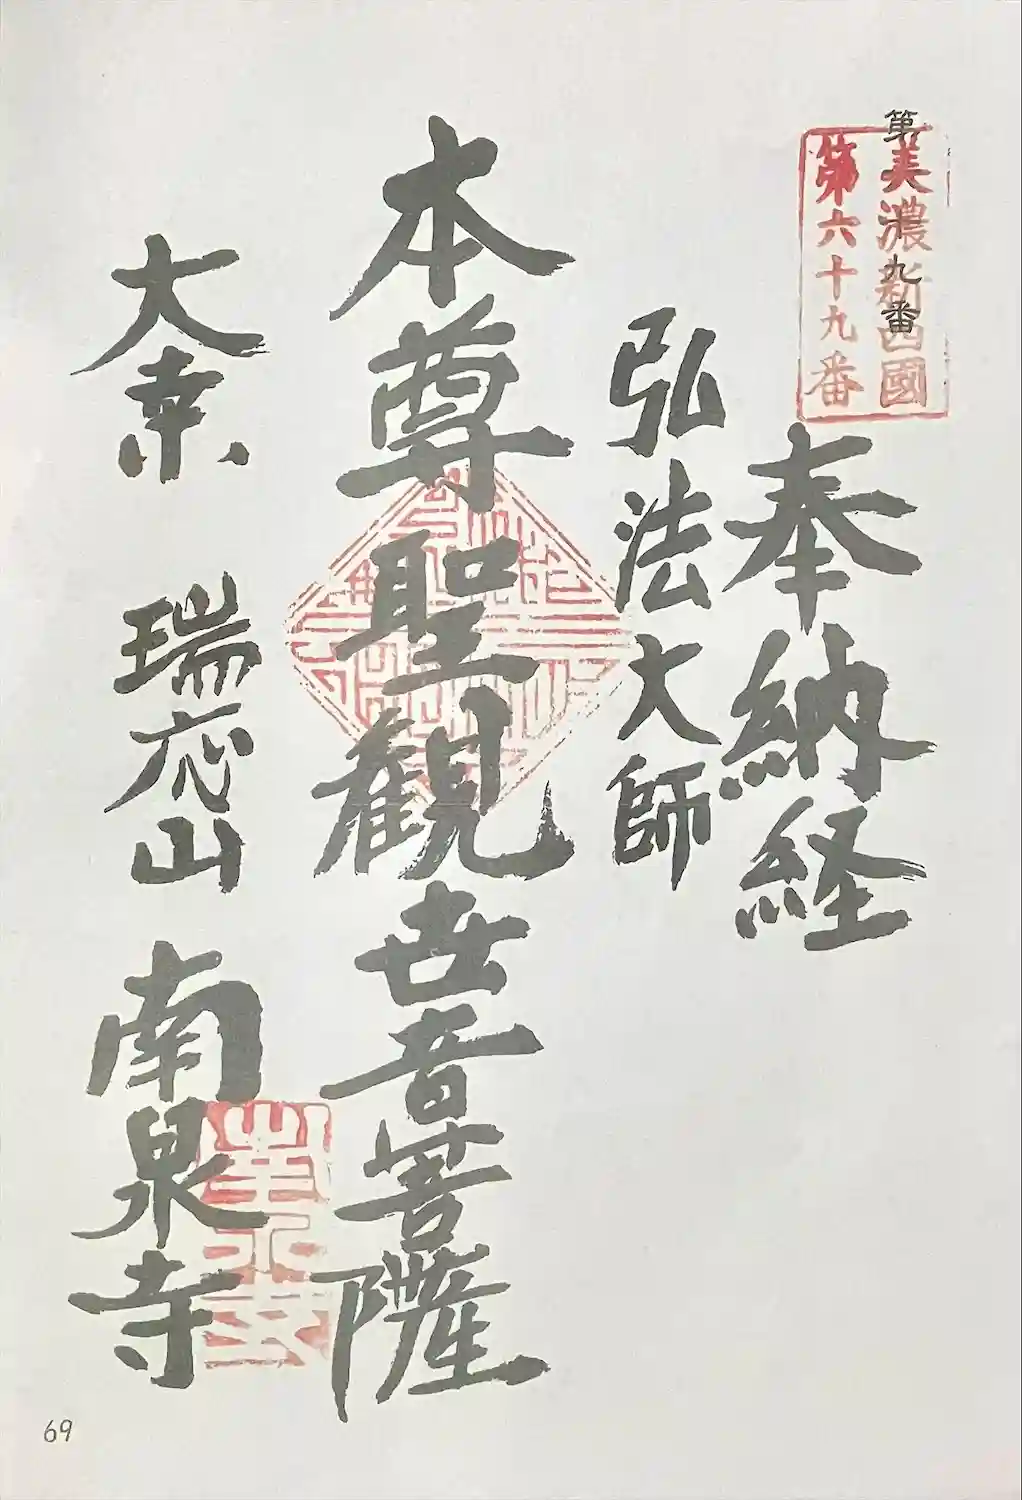 美濃新西國
第六十九番
奉納経
弘法大師
本尊聖観世音菩薩
大桑 瑞応山 南泉寺
69